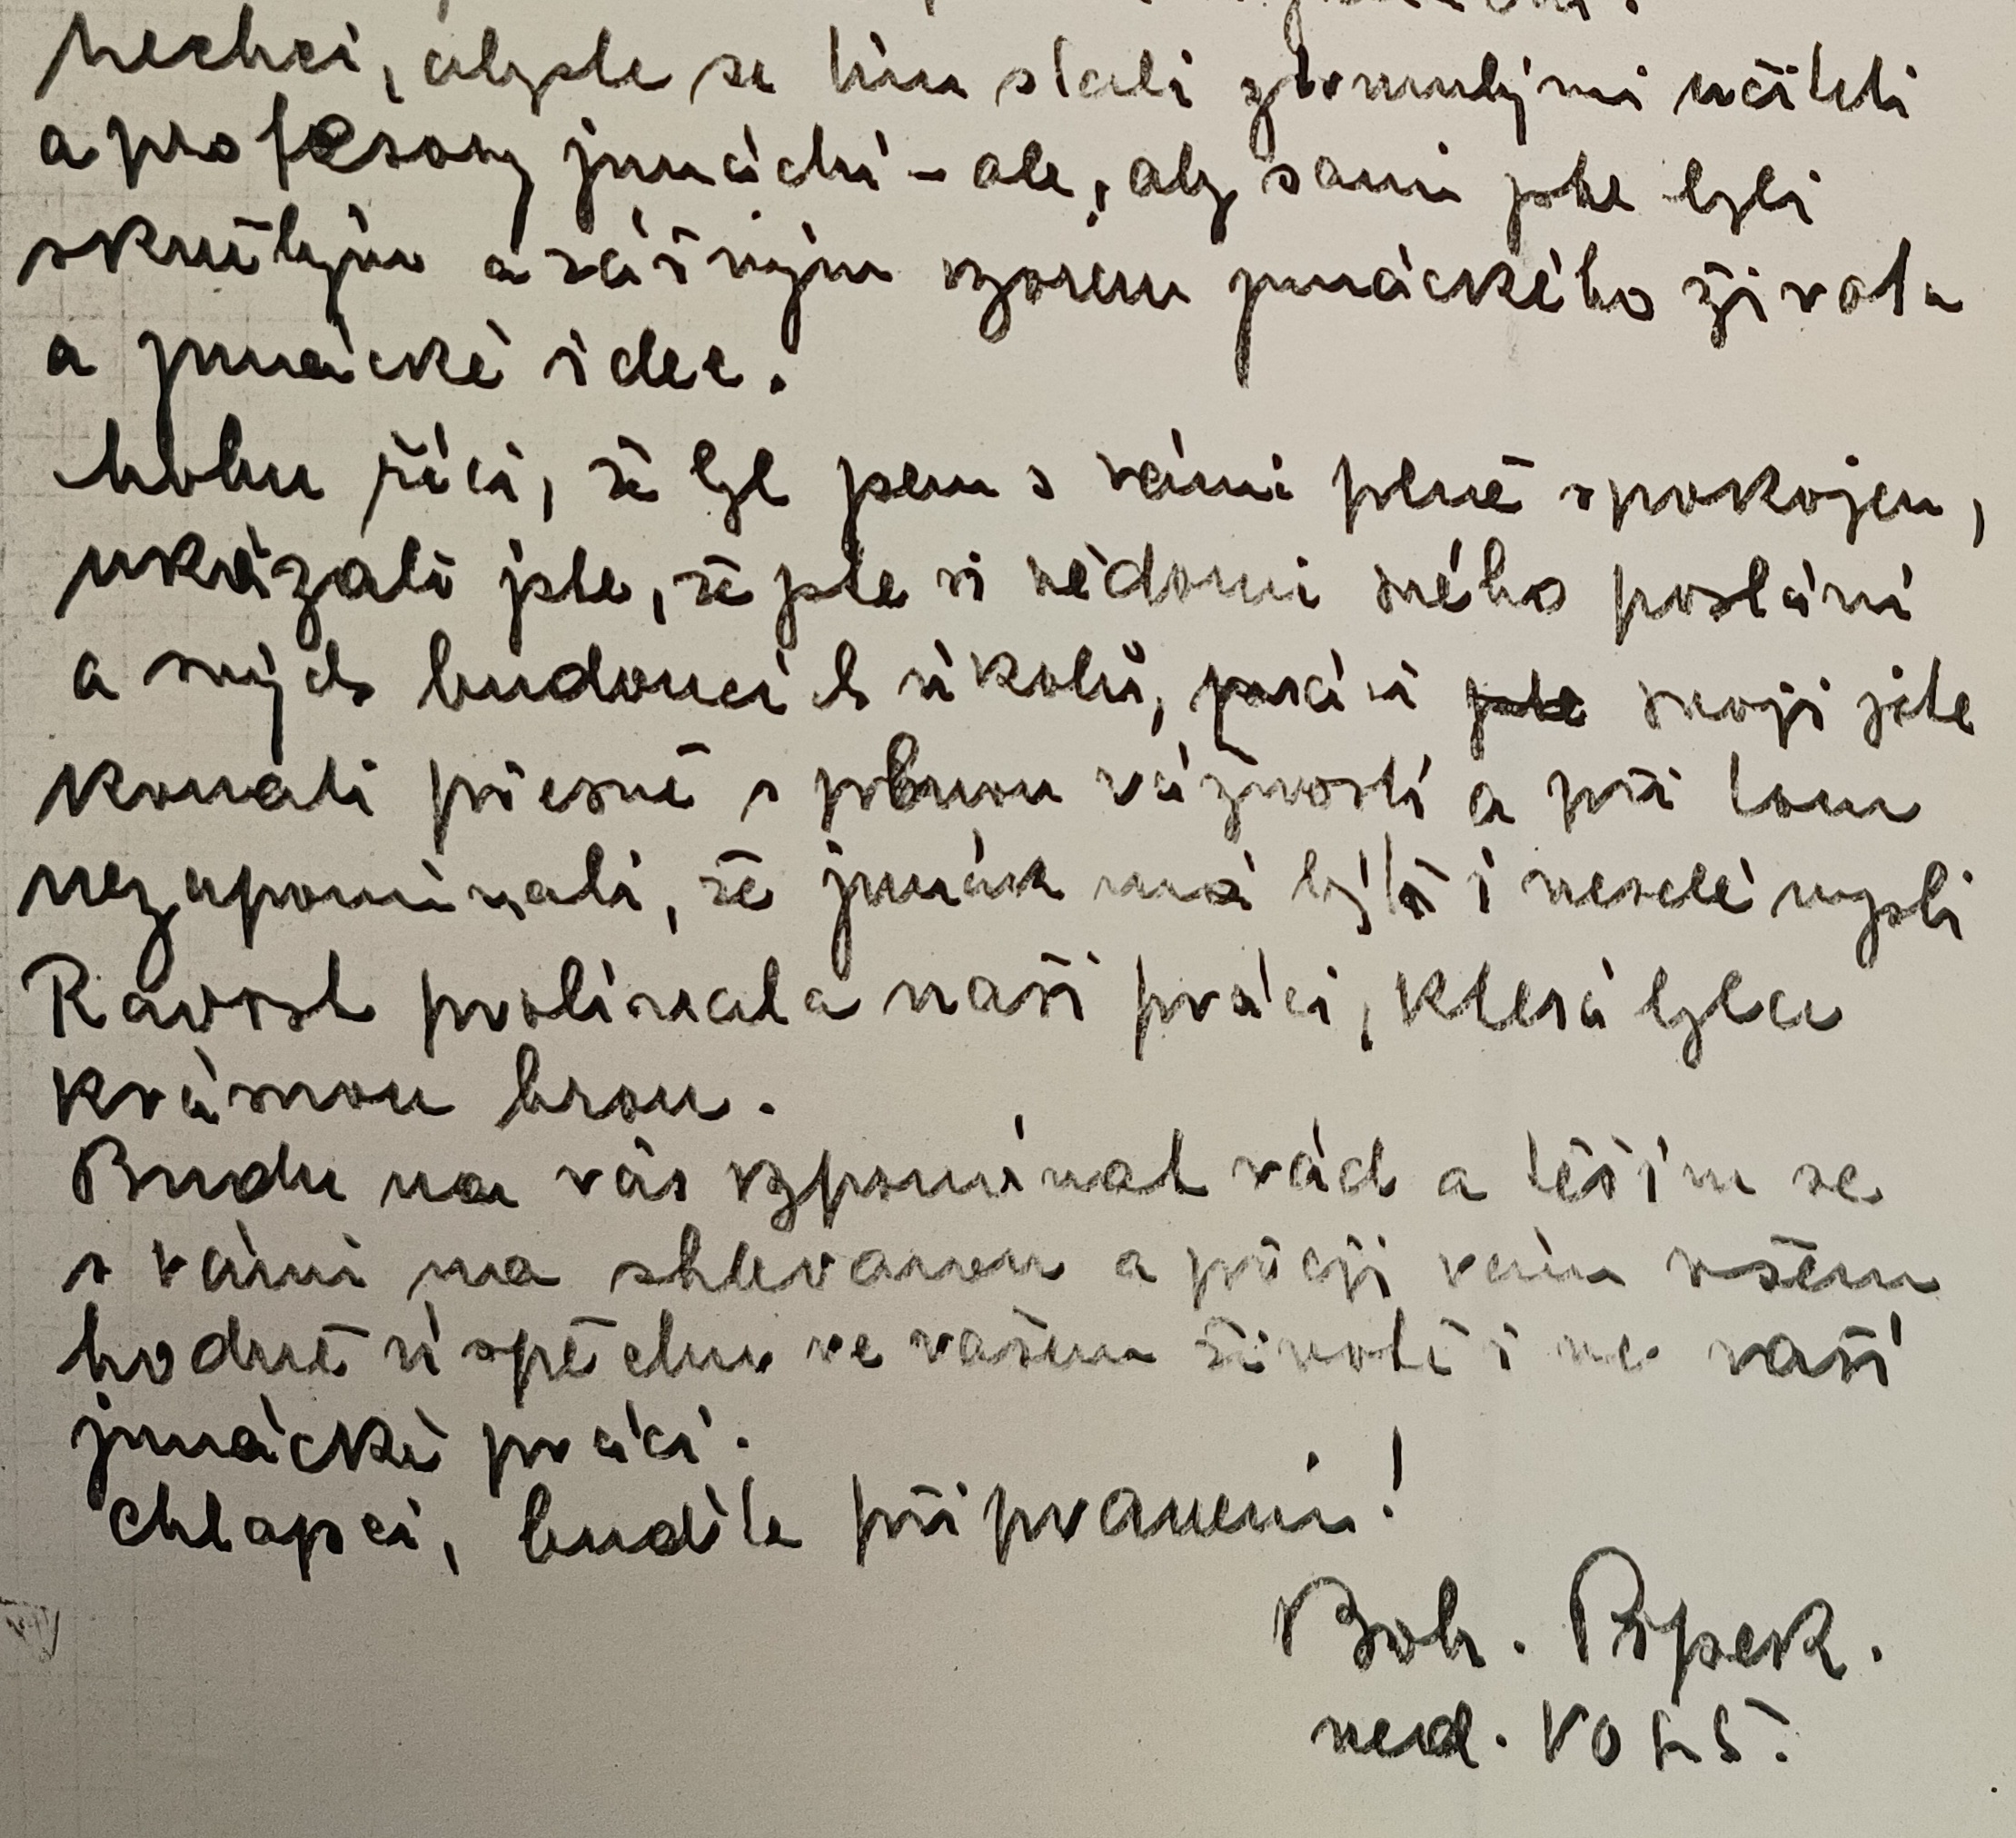 Nechci, abyste se tím stali zkornulými učiteli
a profesory junáctví - ale, aby sami jste byli
skutečným a zářným vzorem junáckého života
a junácké idee.
Mohu říci, že byl jsem s vámi plně spokojen,
ukázali jste, že jste si vědomi svého poslání
a svých budoucích úkolů, práci svoji jste
konali přesně s plnou vážností a při tom
nezapomínali, že junák má být i veselé mysli
Radost prolínala naší prací, která byla
krásnou hrou.
Budu na vás vzpomínat rád a těším se
s vámi na shledanou a přeji vám všem
hodně úspěchu ve vašem životě i ve vaší
junácké práci.
Chlapci, buďte připraveni!
Boh. Pipek.
ved. VOLŠ.